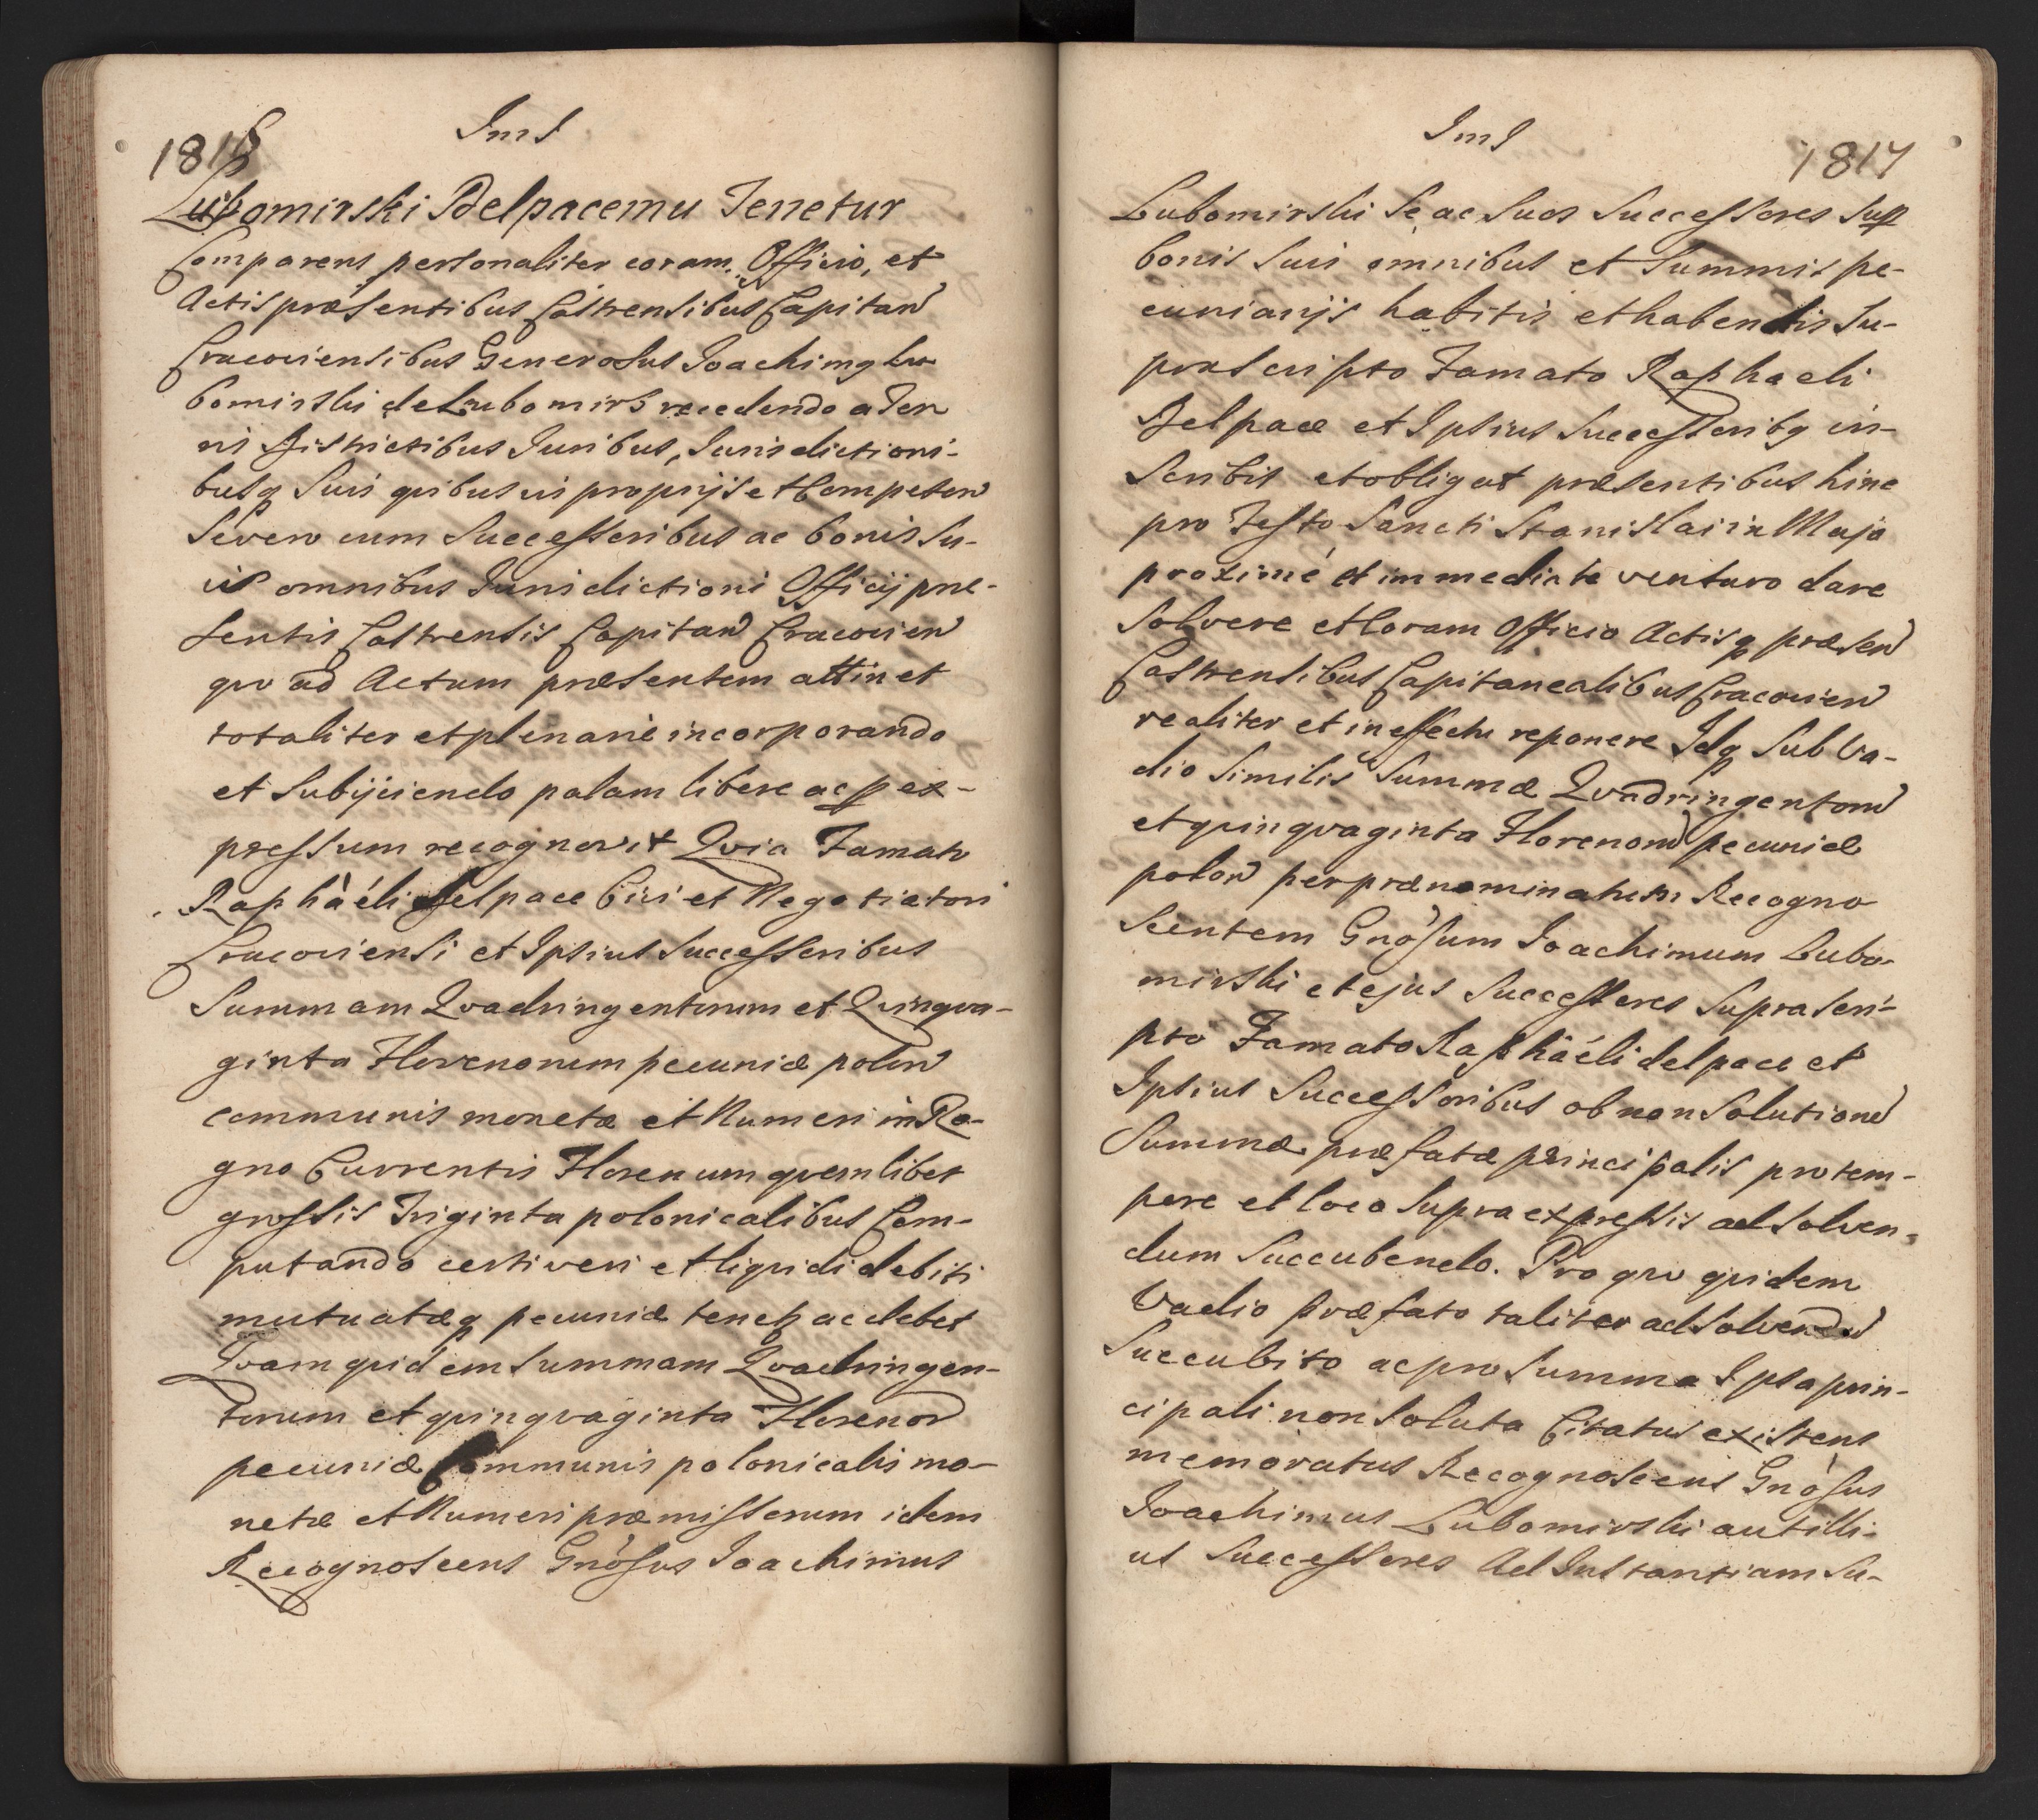 1816
ImI
Lubomirski Delpacemu Tenetur
Comparens personaliter coram Officio, et
Actis præsentibus Castrensibus Capitan
Cracoviensibus Generosus Ioachimq Lu-
bomirski de Lubomirz recedendo a Ter
ris Districtibus Iuribus, Iurisdictioni-
busq Suis quibusvis proprijs et Competen
Se vero cum Successoribus ac bonis Su-
is omnibus Iurisdictioni Officij præ-
sentis Castrensis Capitan Cracovien
qvo ad Actum præsentem attinet
totaliter et plenariè incorporando
et Subijciendo palam libere ac p ex-
pressum recognovit Qvia Famato
Raphàéli Delpace Civi et Negotiatori
Cracoviensi et Ipsius Successoribus
Summam Qvadringentorum et Qvinqva-
ginta Florenorum pecuniæ polon
communis monetæ et Numeri in Re-
gno Currentis Florenum qvemlibet
grossis Triginta polonicalibus Com-
putando certi veri et liqvidi debiti
mutuatæq pecuniæ tenetz ac debet
Qvam qvidem Summam Qvadringen-
torum et qvinqvaginta Florenor
pecuniæ Communis polonicalis mo-
netæ et Numeri præmissorum idem
Recognoscens Gnòsus Ioachimus
ImI
1817
Lubomirski Se ac Suos Successores Sup
bonis Suis omnibus et Summis pe-
cuniarijs habitis et habendis Su-
prascripto Famato Raphaeli
Delpace et Ipsius Successoribq in-
scribit et obligat præsentibus hinc
pro Festo Sancti Stanislai in Majo
proximé et immediate venturo dare
Solvere et Coram Officio Actisq præsen
Castrensibus Capitanealibus Cracovien
realiter et in effectu reponere Idq Sub Va-
dio Similis Summæ Qvadringentorum
et qvinqvaginta Florenorum pecuniæ
polon per prænominatum Recogno
scentem Gnòsum Ioachimum Lubo-
mirski et ejus Successores Suprascri-
pto Famato Raphàéli delpace et
Ipsius Successoribus ob non Solutionem
Summæ præfatæ principalis pro tem-
pore et loco Supra expressis ad Solven-
dum Succubendo. Pro qvo qvidem
Vadio præfato taliter ad Solvendum
Succubito ac pro Summa Ipsa prin-
cipali non Soluta Citatus existens
memoratus Recognoscens Gnòsus
Ioachimus Lubomirski aut illi-
us Successores Ad Instantiam Su-